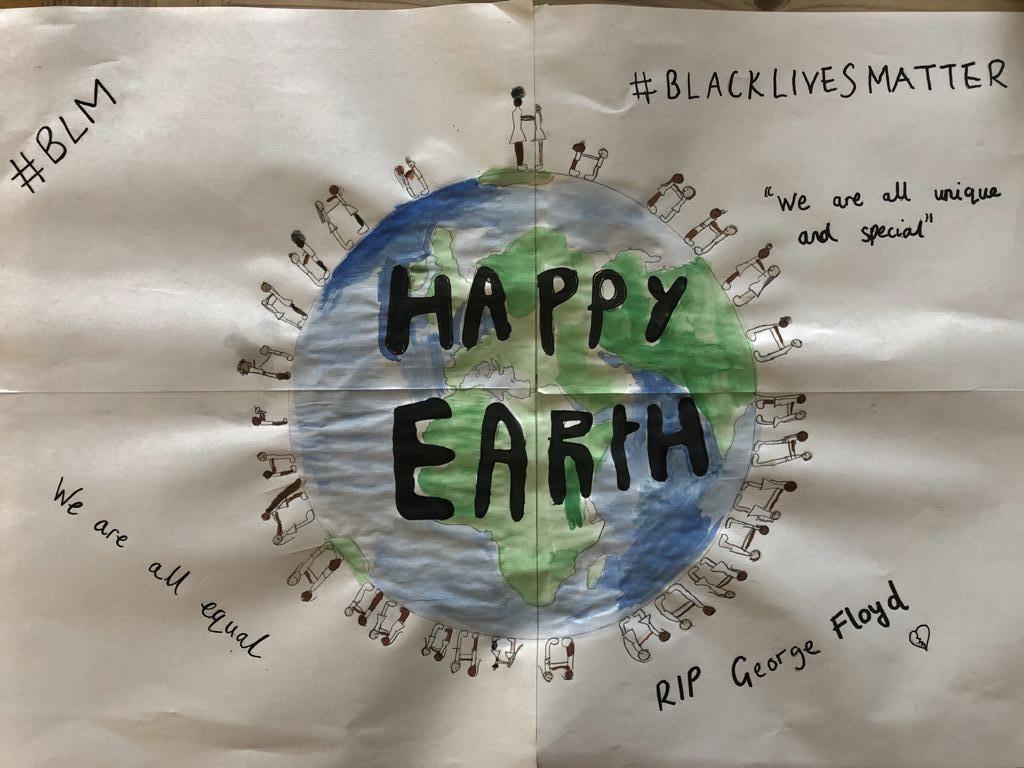 #BLM
#BLACKLIVESMATTER
"We are all unique
and special"
HAPPY
EARTH
We are all equal
RIP George Floyd